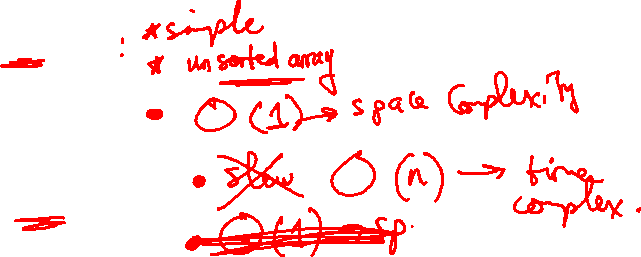 : * simple
* unsorted array
• O(1) → space Complexity
• slow O(n) → time
complex.
• O(1) → sp.